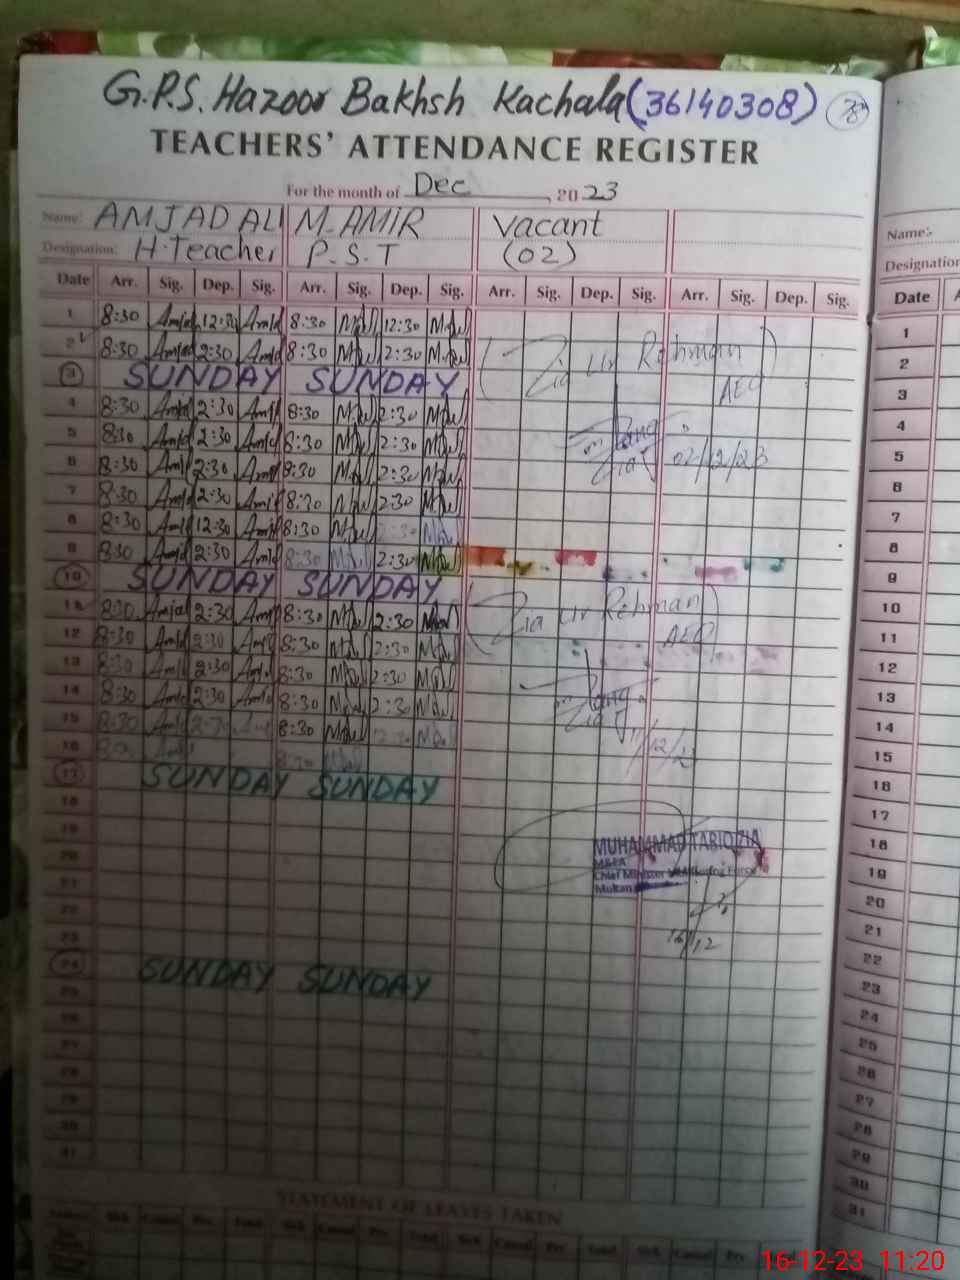 G.P.S. Hazoor Bakhsh Kachala (36140308) 38
TEACHERS' ATTENDANCE REGISTER
For the month of Dec, 2023
Name: AMJAD ALI M. AMIR Vacant
Designation: H.Teacher P.S.T (02)
Date Arr. Sig. Dep. Sig. Arr. Sig. Dep. Sig. Arr. Sig. Dep. Sig. Arr. Sig. Dep. Sig.
1 8:30 Amjd 12:30 Amjd 8:30 12:30
2 8:30 Amjad 2:30 Amjd 8:30 2:30 (Zia Ur Rehman)
3 SUNDAY SUNDAY AEO
4 8:30 Amjd 2:30 Amjd 8:30 2:30
5 8:30 Amjd 2:30 Amjd 8:30 2:30
6 8:30 Amjd 2:30 Amjd 8:30 2:30 Zia 02/12/23
7 8:30 Amjd 2:30 Amjd 8:30 2:30
8 8:30 Amjd 12:30 Amjd 8:30 2:30
9 8:30 Amjd 2:30 Amjd 8:30 2:30
10 SUNDAY SUNDAY
11 8:30 Amjad 2:30 Amjd 8:30 2:30 (Zia Ur Rehman)
12 8:30 Amjd 2:30 Amjd 8:30 2:30 AEO
13 8:30 Amjd 2:30 Amjd 8:30 2:30
14 8:30 Amjd 2:30 Amjd 8:30 2:30
15 8:30 Amjd 2:30 Amjd 8:30 2:30 Zia
16 8:30 Amjd 8:30
17 SUNDAY SUNDAY
18
19
20 MUHAMMAD TARIQ ZIA
21 M&EA
Chief Minister Monitoring Force
Multan
22
23 16/12
24 SUNDAY SUNDAY
25
26
27
28
29
30
31
STATEMENT OF LEAVES TAKEN
Sick Casual Prv. Total Sick Casual Prv. Total Sick Casual Prv. Total Sick Casual Prv. Total
Name:-
Designation
Date
1
2
3
4
5
6
7
8
9
10
11
12
13
14
15
16
17
18
19
20
21
22
23
24
25
26
27
28
29
30
31
16-12-23 11:20